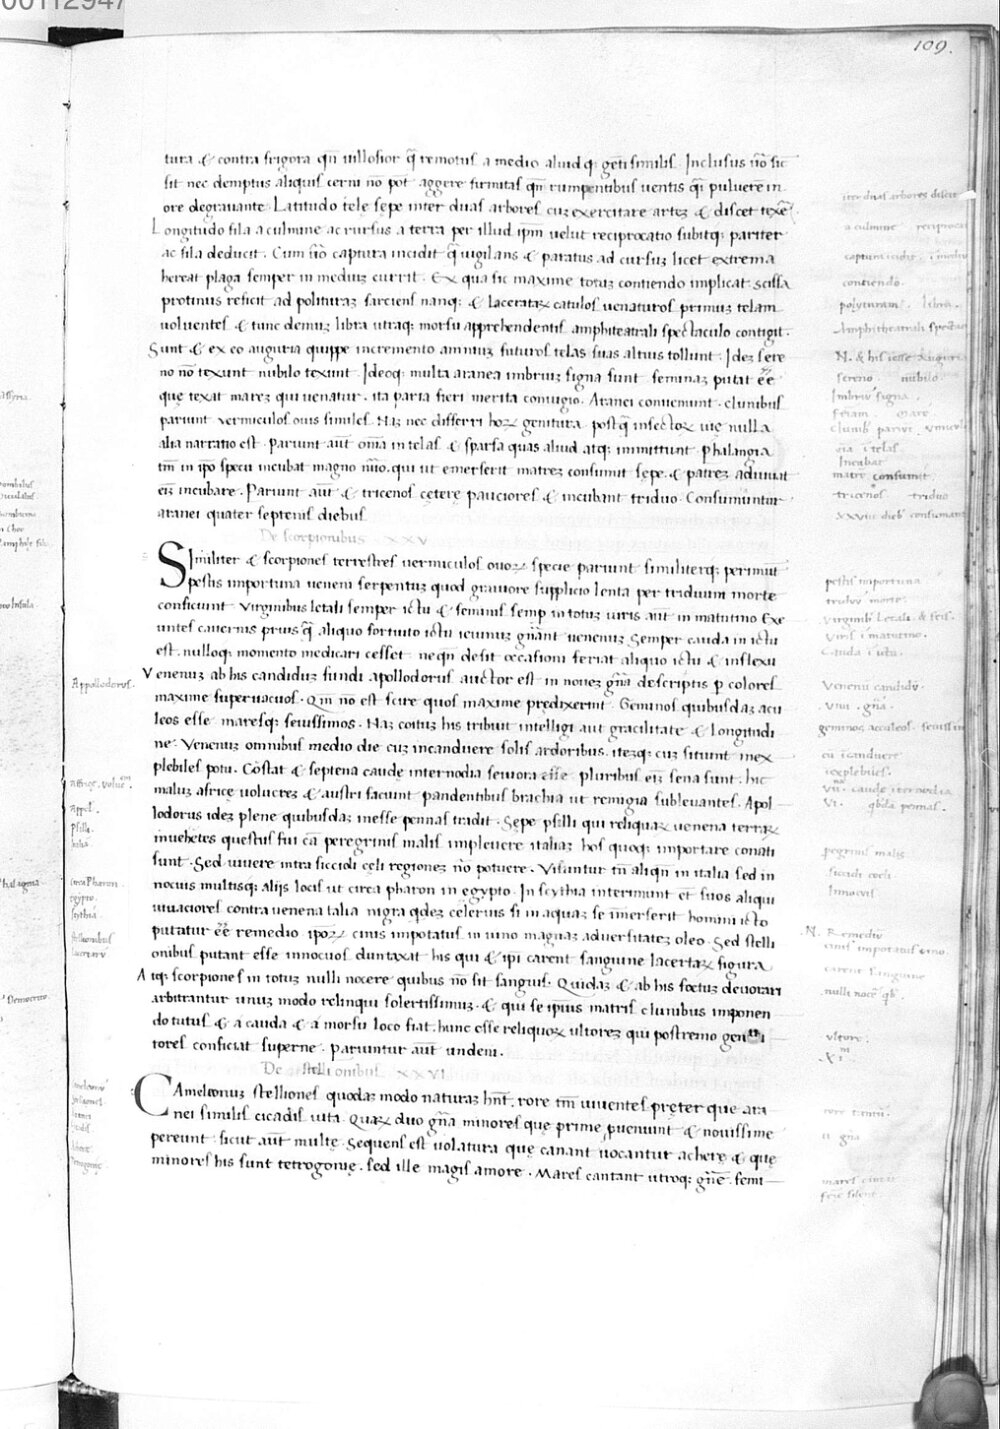 109.
tura & contra frigora qñ uillosior q̃ remotus a medio aliud q; geti similis. Inclusus ñõ sic
sit nec demptus aliquis cerni nõ pot̃ aggere firmitas qñ rumpentibus uentis q̃ puluerẽ in
ore degrauante. Latitudo telę sępe inter duas arbores cuz exercitare artez & discet texẽ
Longitudo fila a culmine ac rursus a terra per illud ipm̃ uelut reciprocatio subitq; pariter
ac fila deducit. Cum ñõ captura incidit q̃ uigilans & paratus ad cursuz licet extrema
hereat plaga semper in mediuz currit. Ex qua sic maxime totuz contiendo implicat. scissa
protinus reficit ad polituraz sarciens nanq; & laceratax catulos uenaturos primuz telam
uoluentes & tunc demuz libra utraq; morsu apprehendentis amphiteatrali spectaculo contigit.
Sunt & ex eo auguria quippe incremento amniuz futuros telas suas altius tollunt. Idez sere
no nõ texunt nubilo texunt. Ideoq; multa aranea imbriuz signa sunt feminaz putat ẽẽ
quę texat marez qui uenatur. ita paria fieri merita coniugio. Aranei conueniunt. clunibus
pariunt uermiculos ouis similes. Naz nec differri hoꝝ genitura. postq̃ insectoꝝ uię nulla
alia narratio est. Pariunt aũt oĩa in telas & sparsa quas aliud atq; inmittunt. Phalangia
tm̃ in ipõ specu incubat magno nũo. qui ut emerserit matrez consumit sępe. & patrez adiuuat
eĩz incubare. Pariunt aũt & tricenos cętere pauciores & incubant triduo. Consumũntur
aranei quater septenis diebus.
De scorpionibus . XXV
Similiter & scorpiones terrestres uermiculos ouoꝝ specie pariunt similiterq; perimũt
pestis importuna ueneni serpentuz quod grauiore supplicio lenta per triduum morte
conficiunt. Virginibus letali semper ictu & feminis semp in totuz uiris aũt in matutino Exe
untes cauernis prius q̃ aliquo fortuito ictu ieiunuz gñant uenenuz. Semper cauda in ictu
est. nulloq; momento medicari cesset. neqñ desit occasioni feriat aliquo ictu & inflexu
Venenuz ab his candiduz fundi apollodorus auctor est in nouez gña descriptis p colores
maxime superuacuos. Qm̃ nõ est scire quos maxime prędixerint. Geminos quibusdaz acu
leos esse maresq; seuissimos. Naz coitus his tribuit intelligi aut gracilitate & longitudi
ne. Venenuz omnibus medio die cuz incanduere solis ardoribus. itezq; cuz sitiunt inex
plebiles potu. Cõstat & septena caudę internodia seuiora esse. pluribus eĩz sena sunt. hic
maluz africę uolucrez & austri faciunt pandentibus brachia ut remigia subleuantes. Apol
lodorus idez plene quibusdaz inesse pennas tradit. Sępe psilli qui reliquaꝝ uenena terraꝝ
inuehẽtes questus sui cã peregrinis malis impleuere italiaz hos quoq; importare conati
sunt. Sed uiuere intra siccidi cęli regionez nõ potuere. Visuntur tñ aliqñ in italia sed in
nocuis multisq; alijs locis ut circa pharon in egypto. In scythia interimunt et suos aliqui
uiuaciores contra uenena talia nigra qdez cęlerius si in aquaz se imerserit homini icto
putatur ẽẽ remedio ipoꝝ cinis impotatus in uino magnaz aduersitatez oleo. Sed stelli
onibus putant esse innocuos duntaxit his qui & ipi carent sanguine lacertaꝝ figura
Atq; scorpiones in totuz nulli nocere quibus nõ sit sanguis. Quidaz & ab his fœtus deuorari
arbitrantur unuz modo relinqui solertissimuz. & qui se ipsius matris clunibus imponen
do tutus & a cauda & a morsu loco fiat. hunc esse reliquoꝝ ultorez qui postremo geni
tores conficiat superne. Pariuntur aũt undeni.
De stellionibus XXVI
CAmeleonuz stelliones quodaz modo naturaz hñt. rore tm̃ uiuentes pręter que ara
nei similis cicadis uita. Quaꝝ duo gña minores que prime p̃ueniunt & nouissime
pereunt. sicut aũt multę. Sequens est uolatura que canant uocantur achetę & quę
minores his sunt tetrogonię. sed ille magis amore. Mares cantant utroq; gñe. femi
Appollodorus.
Appol.
psilli.
Italia.
circa Pharon.
egypto.
scythia.
stellionibus
iter duas arbores discit
a culmine reciprocat
captura icidit. i mediu
contiendo.
polyturam. libra.
Amphitheatrali spectac
N. & his esse Auguri
sereno. nubilo.
Imbriu signa.
i telas.
Incubat.
matrẽ consumit.
tricenos triduo
XXVIII dieb consumant
pestis importuna
triduũ morte.
Virginib letali. & fẽis.
Viris i matutino.
Cauda i ictu.
Venenũ candidũ.
VIIII. gña.
geminos aculeos. seuissim
cũ icanduere
iexplebiles.
VII. caudę iternodia
VI. qbda pennas.
peregrinis malis
siccidi coeli.
Innocuis.
N. Remediũ
cinis impotatus uino.
carent sanguine
nulli nocẽ qb
ultore.
XI
rore tantũ.
II gña
mares cantãt
feĩe silent.